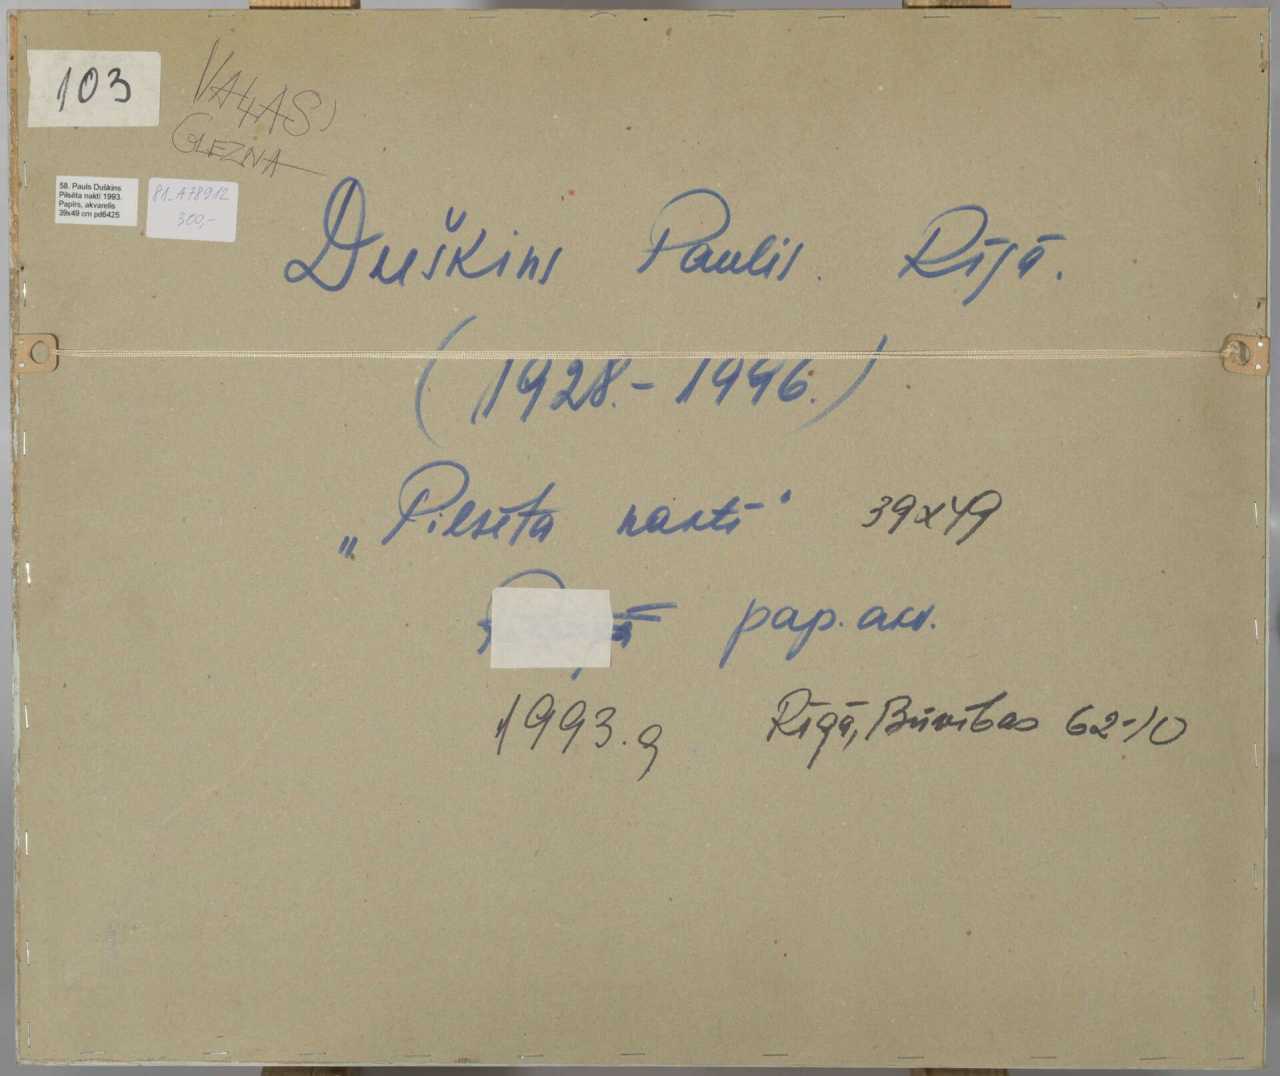 103
VAĻAS
GLEZNA
58. Pauls Duškins
Pilsēta naktī 1993.
Papīrs, akvarelis
39x49 cm pd6425
81-A78912
300,-
Duškins Paulis. Rīgā.
(1928.-1996.)
„Pilsēta naktī" 39x49
pap. akv.
1993. g Rīgā, Buņības 62-10